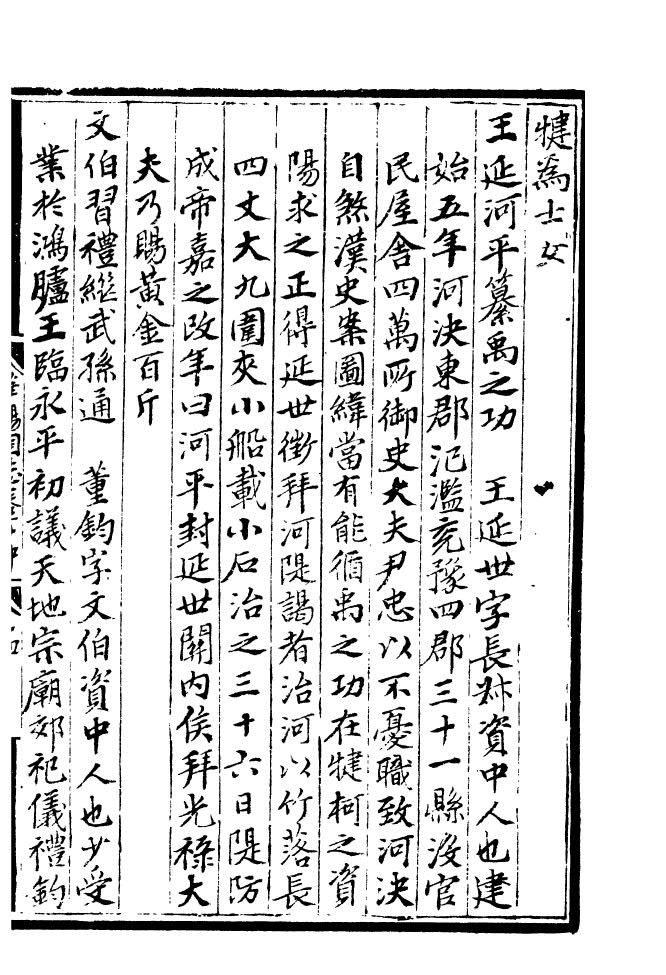 犍為士女
王延河平纂禹之功　王延世字長叔資中人也建
始五年河決東郡氾濫兖豫四郡三十一縣没官
民屋舍四萬所御史大夫尹忠以不憂職致河決
自煞漢史案圖緯當有能循禹之功在犍柯之資
陽求之正得延世徵拜河隄謁者治河以竹落長
四丈大九圍夾小船載小石治之三十六日隄防
成帝嘉之改年曰河平封延世關內侯拜光祿大
夫乃賜黃金百斤
文伯習禮繼武孫通　董鈞字文伯資中人也少受
業於鴻臚王臨永平初議天地宗廟郊祀儀禮鈞